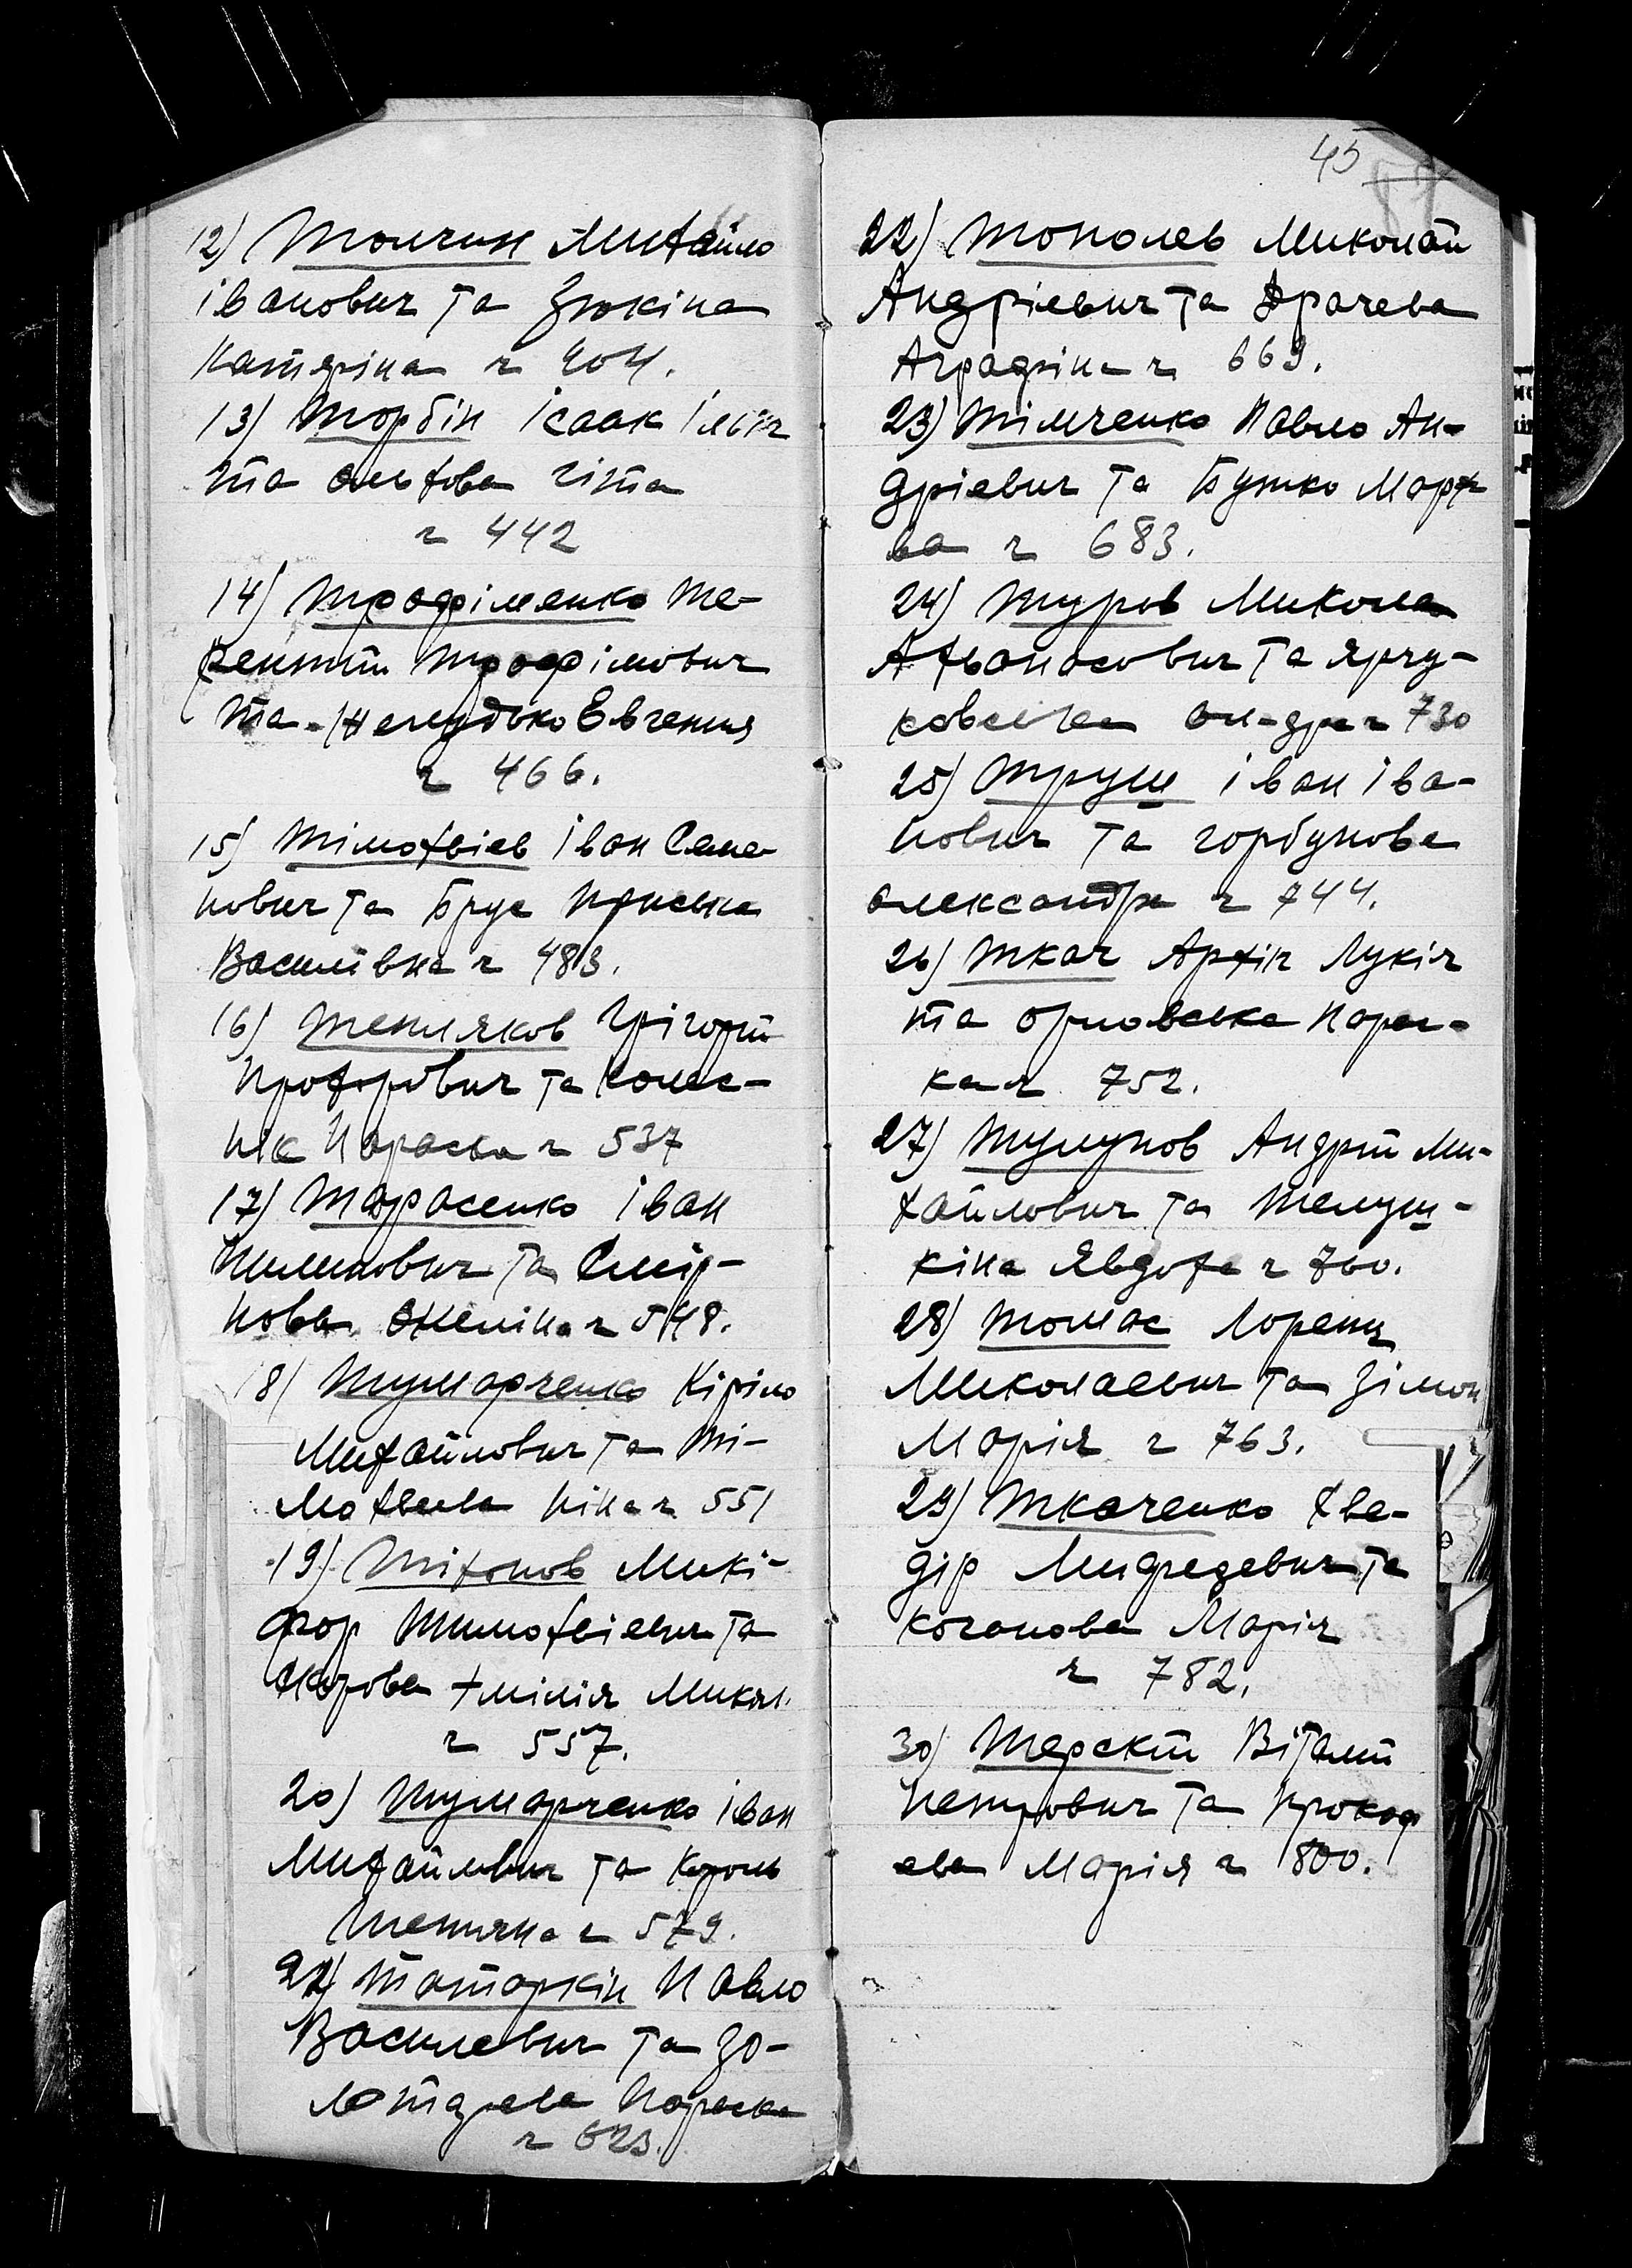 12) Толчин Михайло
Іванович та Зюкіна
Катеріна ч 404.
13) Торбін Ісаак Ілліч
та Ольхова Гіта
ч 442
14) Трофіменко Те-
рентій Трофімович
та Нечудько Евгенія
ч 466.
15) Тімохвіев Іван Семе-
нович та Брус Приська
Василівна ч 483.
16) Тепляков Грігорій
Прохорович та Колес-
нік Параска ч 537
17) Тарасенко Іван
Пилипович та Смір-
нова Анеліна ч 548.
18) Тумарченко Кіріло
Михайлович та Ті-
мохвеева Ніна ч 551
19) Тіхонов Микі-
фор Тимохвіевич та
Хмілія Микол.
ч 557.
20) Тумарченко Іван
Михайлович та Король
Тетяна ч 579.
21) Татаркін Павло
Василевич та Зо-
лотарева Параска
ч 623.
45
22) Тополев Миколай
Андріевич та Драчева
Аграфіна ч 669.
23) Тімченко Павло Ан-
дріевич та Бутко Марх-
ва ч 683.
24) Туров Микола
Ахванасович та Ярчу-
ковська Ол-дра ч 730
25) Труш Іван Іва-
нович та Горбунова
Олександра ч 744.
26) Ткач Архіп Лукіч
та Орловська Парас-
ка ч 752.
27) Тулупов Андрій Ми-
хайлович та Телуш-
кіна Явдоха ч 760.
28) Томас Лоренц
Миколаевич та Зімон
Марія ч 763.
29) Ткаченко Хве-
дір та
Коганова Марія
ч 782.
30) Терскій Віталій
Петрович та Прокоф
ева Марія ч 800.